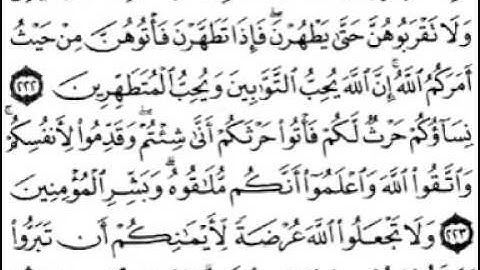 وَلَا تَقْرَبُوهُنَّ حَتَّىٰ يَطْهُرْنَ ۖ فَإِذَا تَطَهَّرْنَ فَأْتُوهُنَّ مِنْ حَيْثُ
أَمَرَكُمُ اللَّهُ ۚ إِنَّ اللَّهَ يُحِبُّ التَّوَّابِينَ وَيُحِبُّ الْمُتَطَهِّرِينَ ٢٢٢
نِسَاؤُكُمْ حَرْثٌ لَّكُمْ فَأْتُوا حَرْثَكُمْ أَنَّىٰ شِئْتُمْ ۖ وَقَدِّمُوا لِأَنفُسِكُمْ ۚ
وَاتَّقُوا اللَّهَ وَاعْلَمُوا أَنَّكُم مُّلَاقُوهُ ۗ وَبَشِّرِ الْمُؤْمِنِينَ
٢٢٣ وَلَا تَجْعَلُوا اللَّهَ عُرْضَةً لِّأَيْمَانِكُمْ أَن تَبَرُّوا